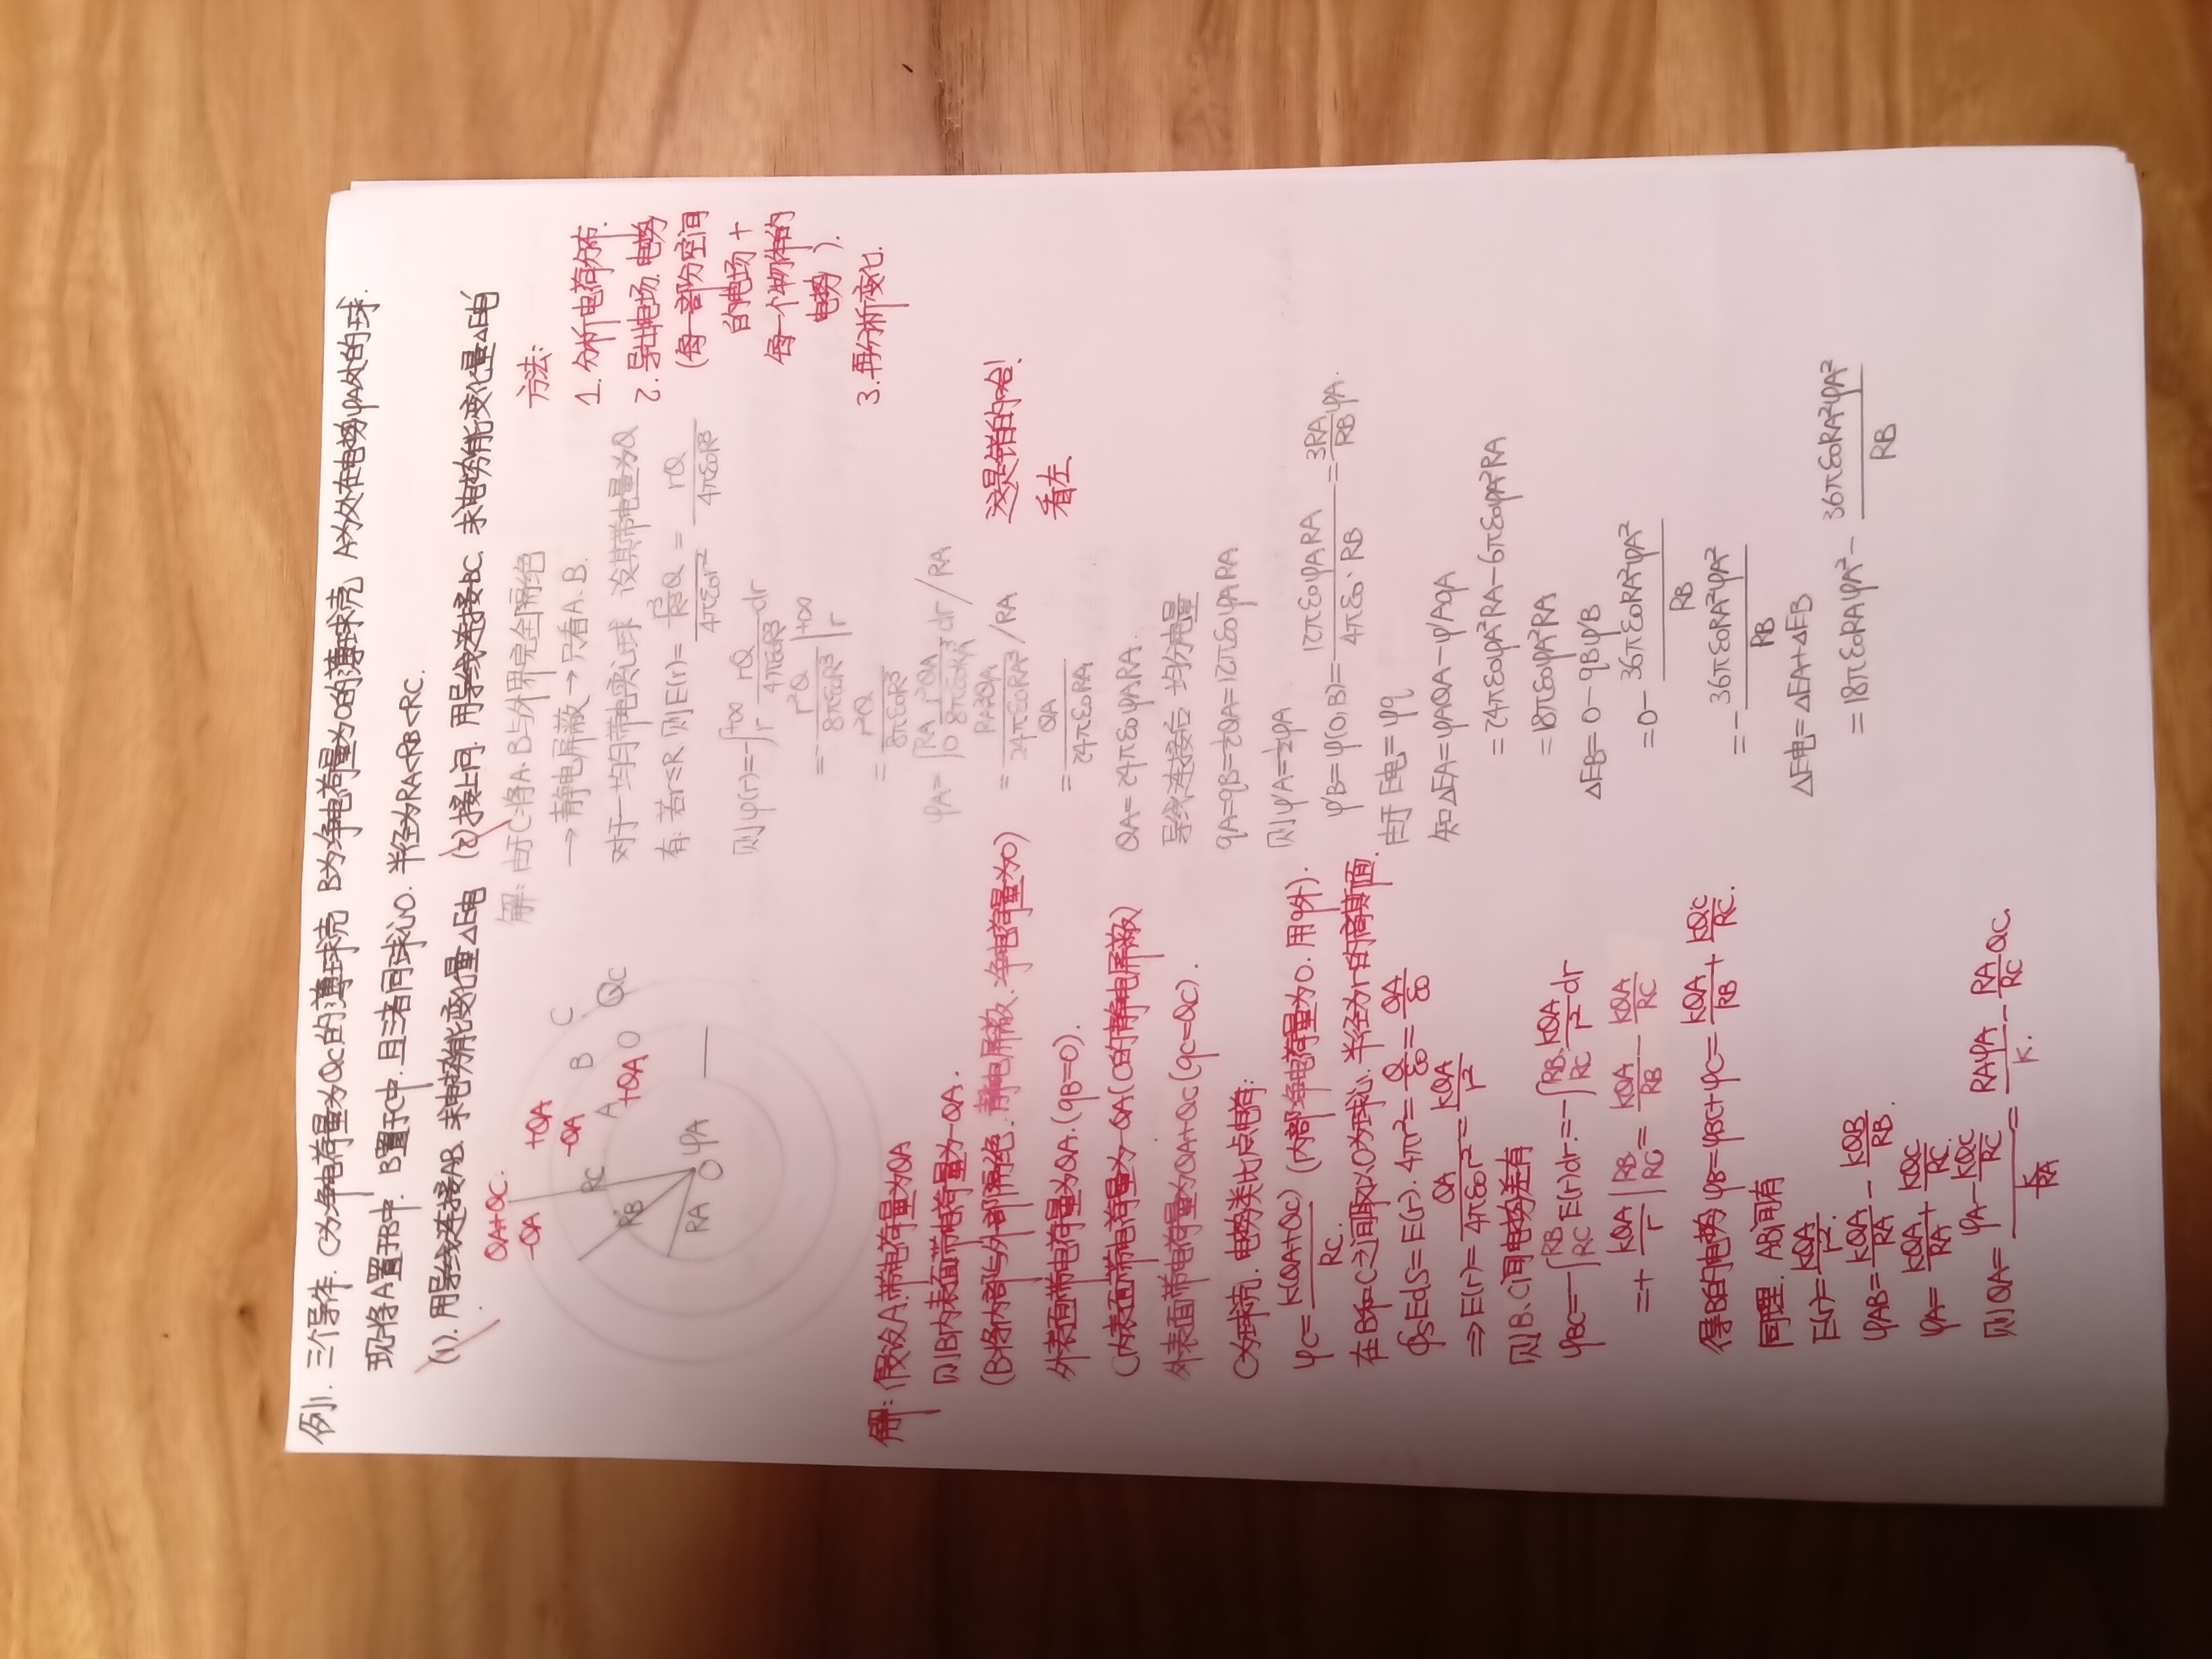 例1. 三个导体. C为净电荷量为QC的薄球壳 B为净电荷量为0的薄球壳 A为处在电势φA处的球.
现将A置于B中. B置于C中.且三者同球心O. 半径为RA<RB<RC.
(1).用导线连接AB. 求电势能变化量△E电 (2)接上问.用导线连接BC.求电势能变化量△E电
QA+QC.
-QA
+QA
-QA
+QA
A
B
C
O
QC
RA
RB
RC
O
φA
解:假设A带电荷量为QA
则B内表面带电荷量为-QA.
(B将内部与外部隔绝.静电屏蔽.净电荷量为0)
外表面带电荷量为QA.(qB=0).
C内表面带电荷量为-QA(C的静电屏蔽)
外表面带电荷量为QA+QC(qC=QC).
C为球壳.电势类比点电荷:
φC=k(QA+QC)/RC (内部净电荷量为0.用q外).
在B和C之间取以O为球心.半径为r的高斯面.
∮SEdS=E(r)·4πr²=Q/ε0=QA/ε0
⇒E(r)=QA/4πε0r²=kQA/r²
则B、C间电势差有
φBC=-∫RC RB E(r)dr=-∫RC RB kQA/r² dr
=+kQA/r|RC RB=kQA/RB-kQA/RC
得B的电势φB=φBC+φC=kQA/RB+kQC/RC.
同理.AB间有
E(r)=kQA/r².
φAB=kQA/RA-kQB/RB.
φA=kQA/RA+kQC/RC
则QA=(φA-kQC/RC)/(k/RA)=RAφA/k-RA/RC QC.
解:由于C将A.B与外界完全隔绝
→静电屏蔽→只看A.B.
对于一均匀带电实心球 设其带电量为Q
有:若r≤R 则E(r)=r³/R³Q/4πε0r²=rQ/4πε0R³
则φ(r)=-∫r +∞ rQ/4πε0R³ dr
=-r²Q/8πε0R³|r +∞
=r²Q/8πε0R³
φA=∫0 RA r²QA/8πε0RA³ dr/RA
=RA³QA/24πε0RA³/RA
=QA/24πε0RA
QA=24πε0φARA.
导线连接后 均分电量
qA=qB=½QA=12πε0φARA
则φ'A=½φA
φ'B=φ(0,B)=12πε0φARA/4πε0·RB=3RA/RBφA.
由于E电=φq
知△EA=φAQA-φ'AqA
=24πε0φA²RA-6πε0φA²RA
=18πε0φA²RA
△EB=0-qBφ'B
=0-36πε0RA²φA²/RB
=-36πε0RA²φA²/RB
△E电=△EA+△EB
=18πε0RAφA²-36πε0RA²φA²/RB
这是错的哈!
看左
方法:
1.分析电荷分布.
2.导出电场.电势
(每一部份空间
的电场+
每一个物体的
电势).
3.再分析变化.